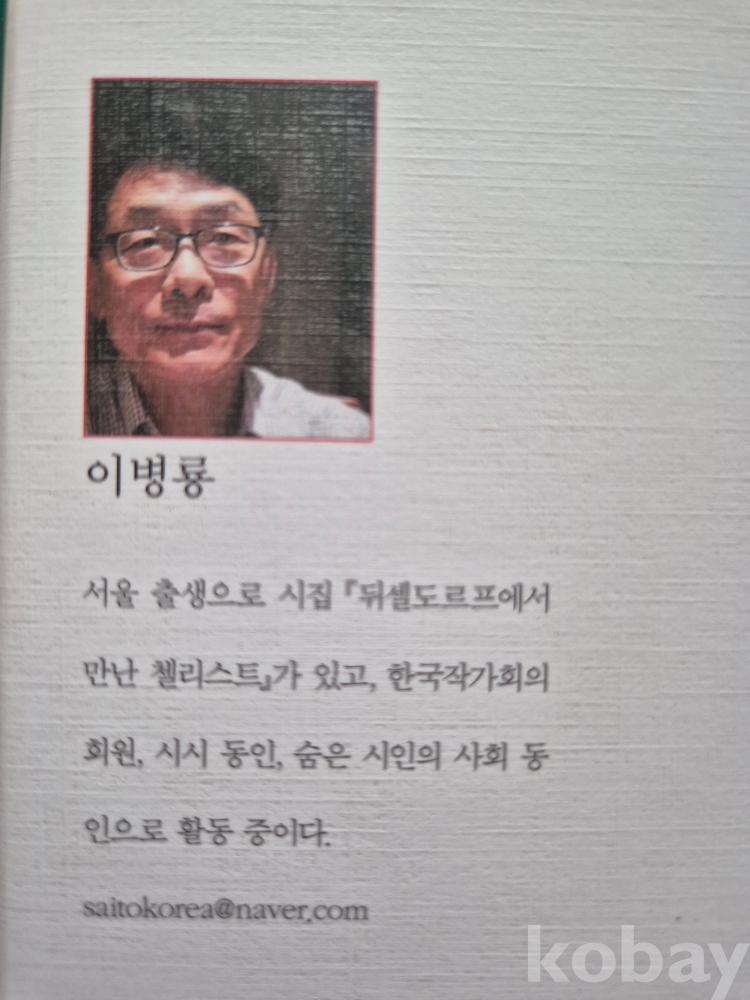 이병룡
서울 출생으로 시집 『뒤셀도르프에서
만난 첼리스트』가 있고, 한국작가회의
회원, 시시 동인, 숨은 시인의 사회 동
인으로 활동 중이다.
saitokorea@naver.com
kobay